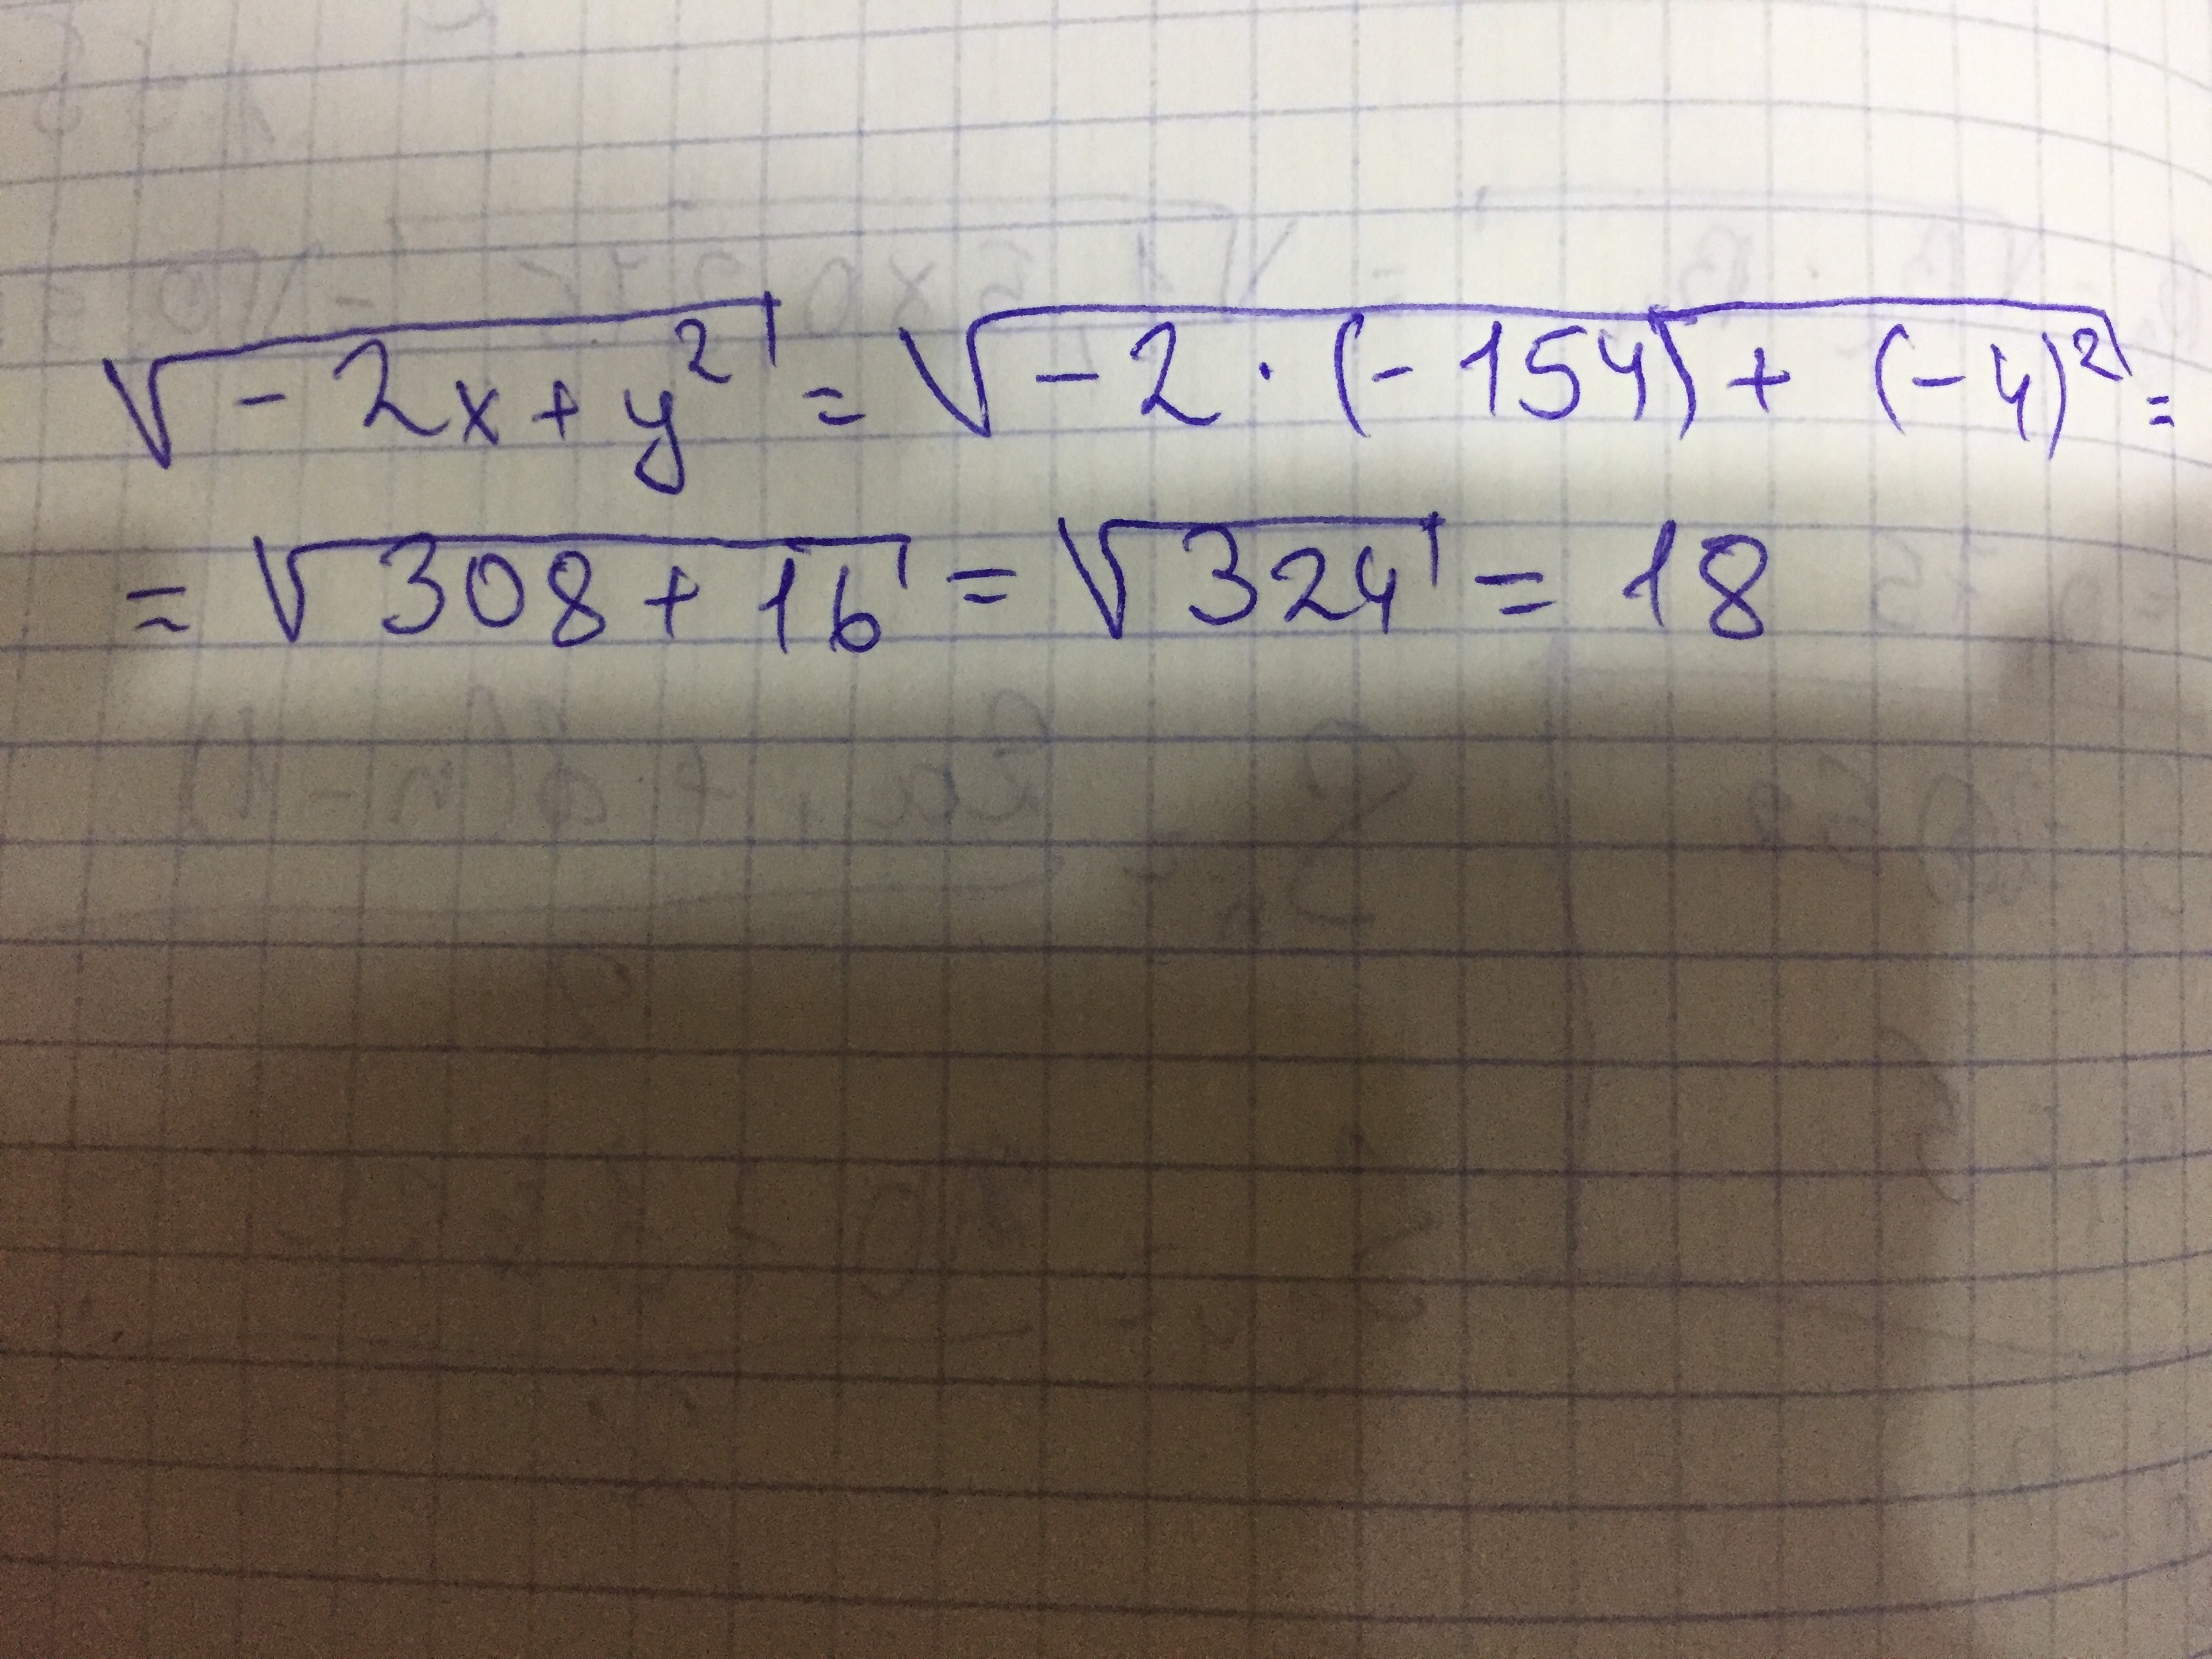 √-2x+y² = √-2·(-154)+(-4)² =
= √308+16 = √324 = 18